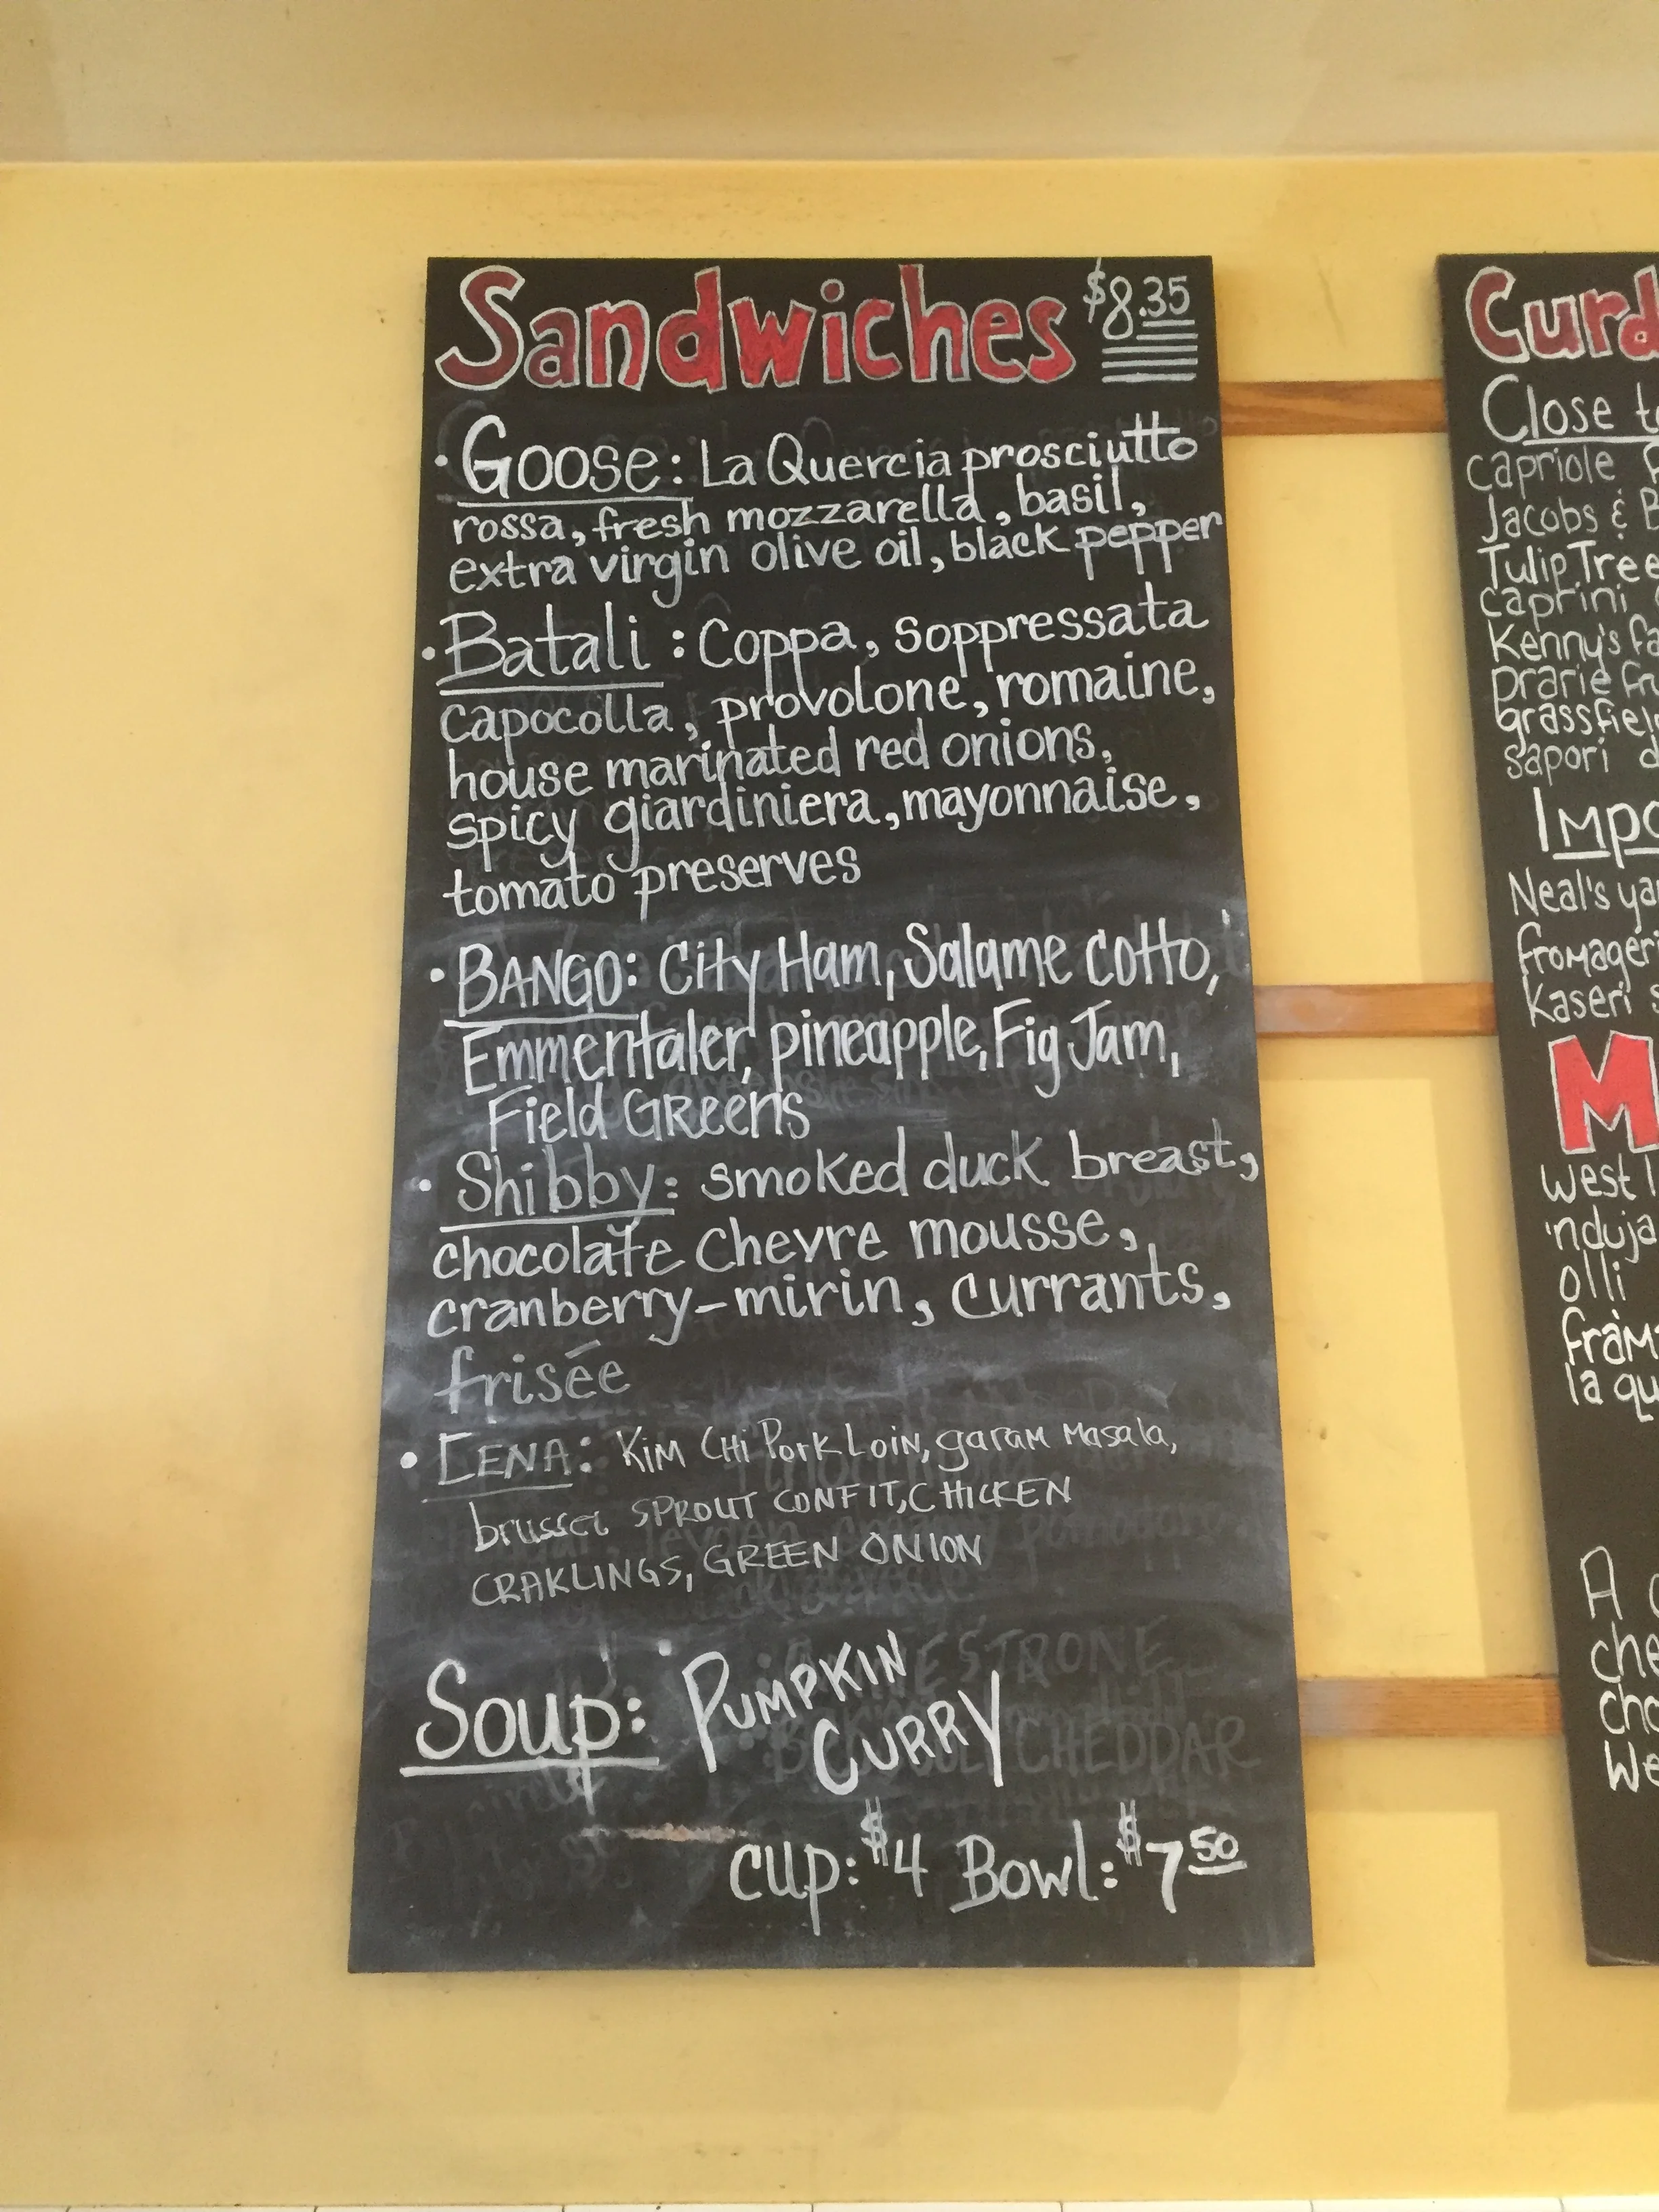 Sandwiches $8.35
• Goose: La Quercia prosciutto
rossa, fresh mozzarella, basil,
extra virgin olive oil, black pepper
• Batali: Coppa, soppressata
capocolla, provolone, romaine,
house marinated red onions,
spicy giardiniera, mayonnaise,
tomato preserves
• BANGO: City Ham, Salame cotto,
Emmentaler, pineapple, Fig Jam,
Field GREENS
• Shibby: smoked duck breast,
chocolate Chevre mousse,
cranberry-mirin, currants,
frisée
• CENA: KiM CHi Pork LoiN, garam Masala,
brussel SPROUT CONFIT, CHICKEN
CRAKLINGS, GREEN ONION
Soup: PUMPKIN
CURRY
cup: $4 Bowl: $7 50
Curd
Close to
capriole
Jacobs & B
Tulip Tree
caprini
Kenny's fa
prarie fru
grassfiel
sapori d
Impo
Neal's yar
fromageri
Kaseri s
M
west l
'nduja
olli
fram
la qu
A c
che
cho
we